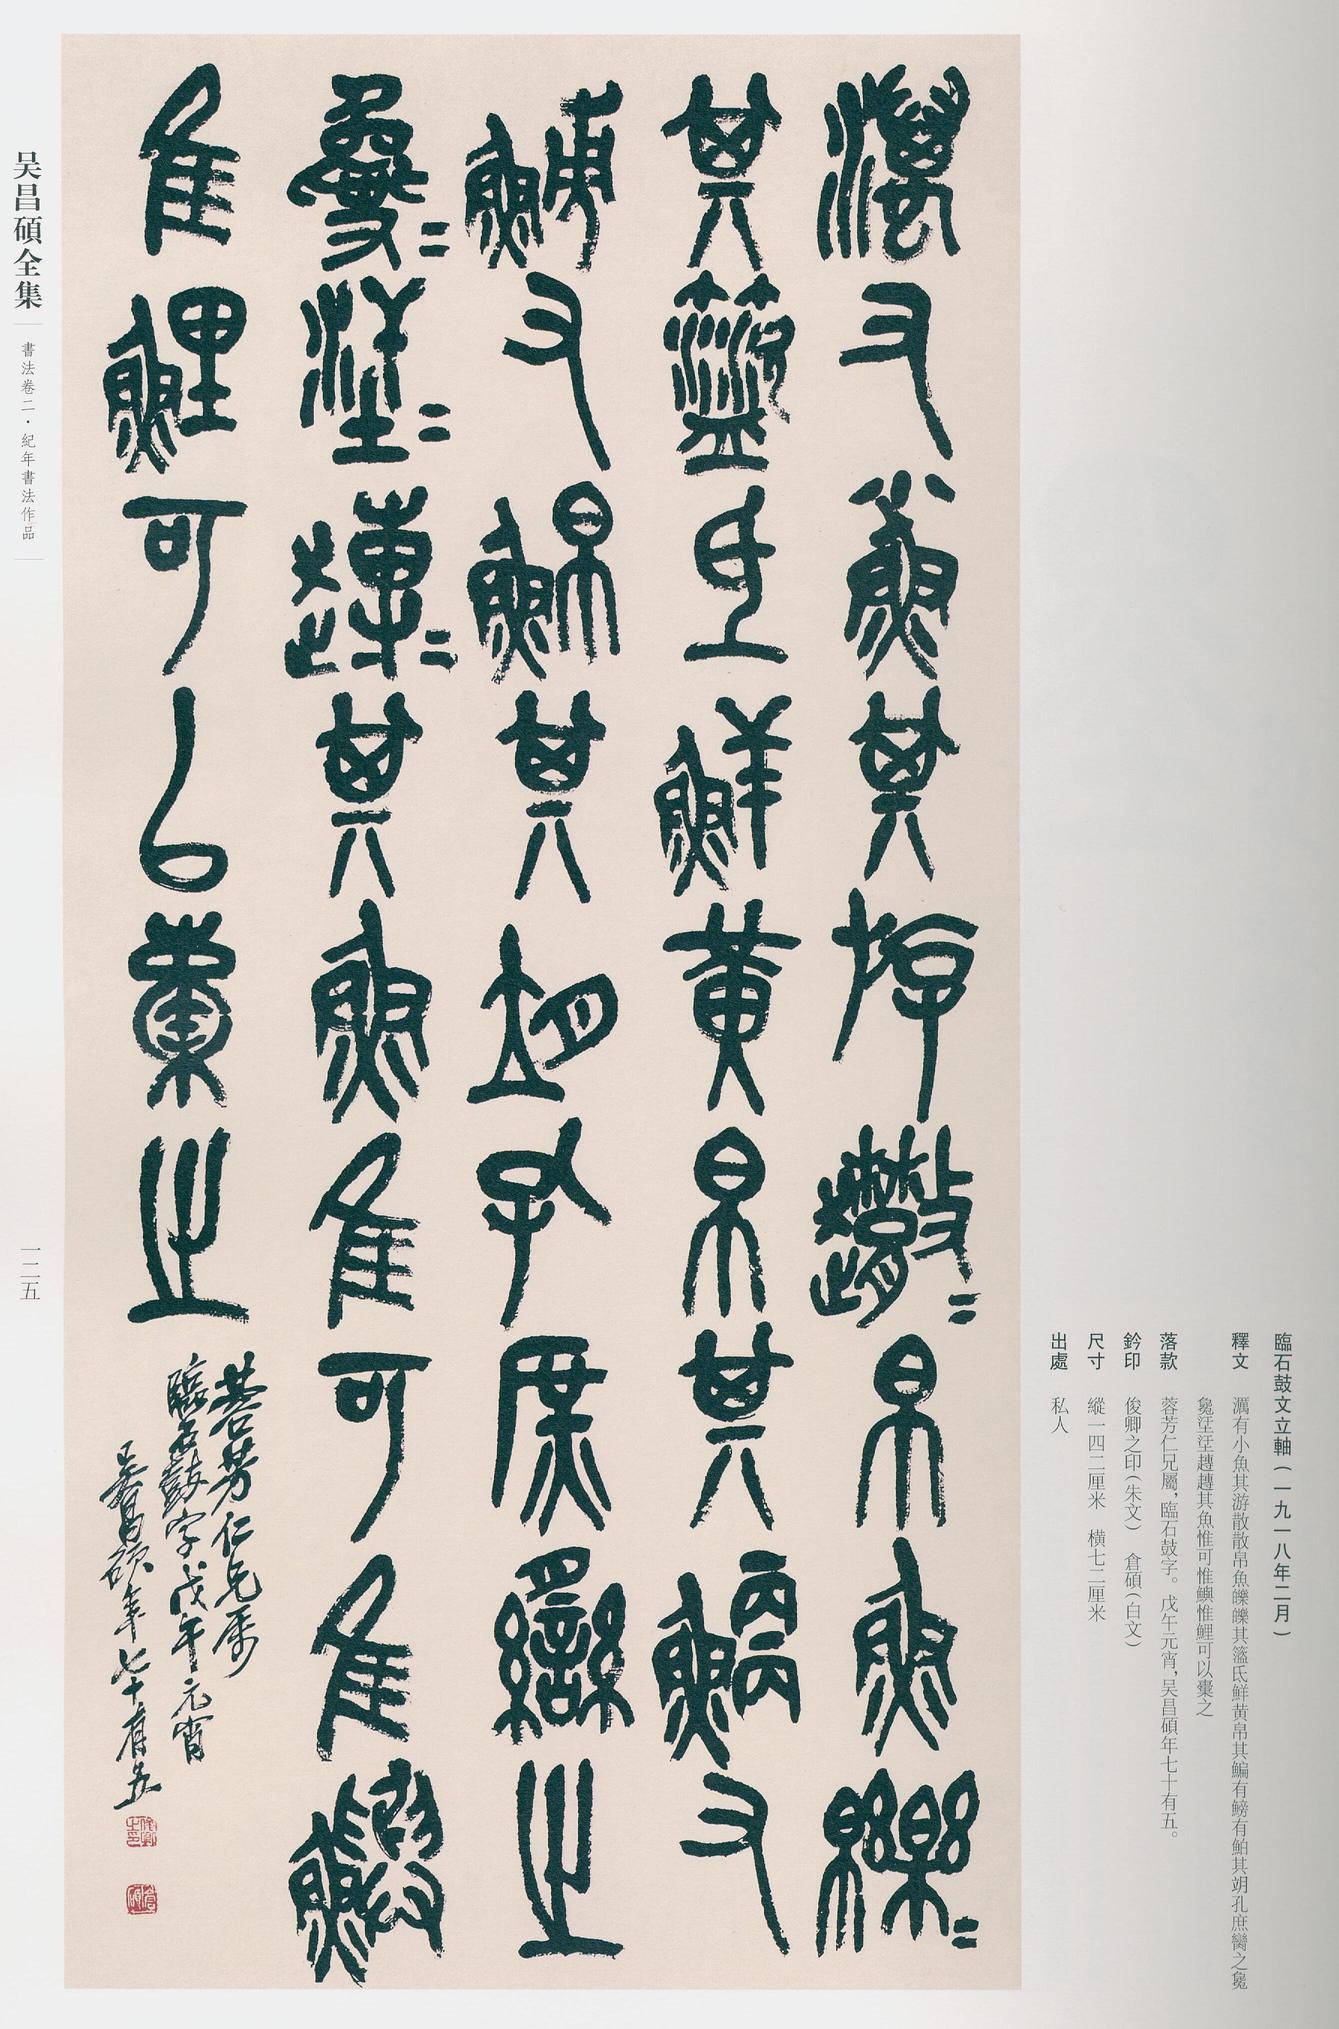 臨石鼓文立軸(一九一八年二月)
釋文 澫有小魚其游散散帛魚皪皪其簉氏鮮黄帛其鯿有鰟有鮊其䏎孔庶臠之毚
毚汪汪趠趠其魚惟可惟鱮惟鯉可以橐之
落款 蓉芳仁兄屬,臨石鼓字。戊午元宵,吴昌碩年七十有五。
鈐印 俊卿之印(朱文) 倉碩(白文)
尺寸 縱一四二厘米 横七二厘米
出處 私人
澫又小魚其斿散帛魚
其氏鮮黄帛其鯿又
鰟又鮊其孔庶臠之
其魚隹可隹鱮
隹鯉可以橐之
蓉芳仁兄屬
臨石鼓字戊午元宵
吴昌碩年七十有五
俊卿之印
倉碩
吴昌碩全集
書法卷二·紀年書法作品
一二五